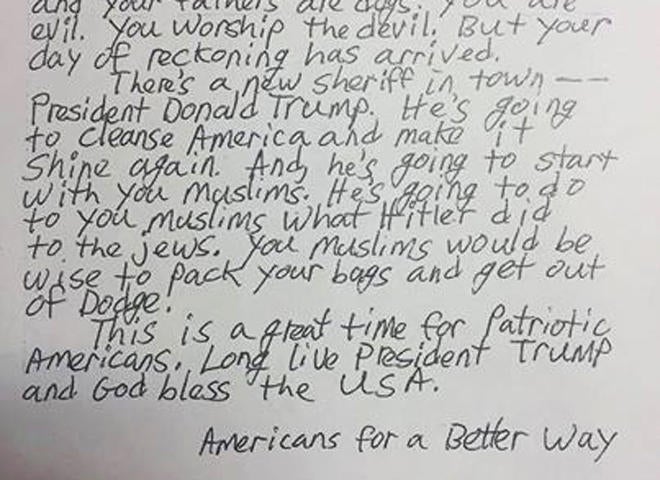 and your fathers are dogs. You are
evil. You worship the devil. But your
day of reckoning has arrived.
There's a new sheriff in town --
President Donald Trump. He's going
to cleanse America and make it
shine again. And, he's going to start
with you muslims. He's going to do
to you muslims what Hitler did
to the jews. You muslims would be
wise to pack your bags and get out
of Dodge.
This is a great time for Patriotic
Americans. Long live President Trump
and God bless the USA.
Americans for a Better Way